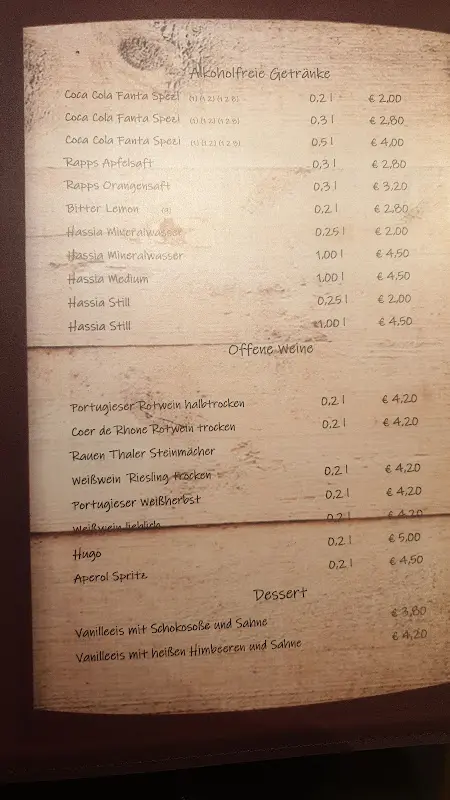 Alkoholfreie Getränke
Coca Cola Fanta Spezi (1) (1.2) (1.2.8) 0,2 l € 2,00
Coca Cola Fanta Spezi (1) (1.2) (1.2.8) 0,3 l € 2,80
Coca Cola Fanta Spezi (1) (1.2) (1.2.8) 0,5 l € 4,00
Rapps Apfelsaft 0,3 l € 2,80
Rapps Orangensaft 0,3 l € 3,20
Bitter Lemon 0,2 l € 2,80
Hassia Mineralwasser 0,25 l € 2,00
Hassia Mineralwasser 1,00 l € 4,50
Hassia Medium 1,00 l € 4,50
Hassia Still 0,25 l € 2,00
Hassia Still 1,00 l € 4,50
Offene Weine
Portugieser Rotwein halbtrocken 0,2 l € 4,20
Coer de Rhone Rotwein trocken 0,2 l € 4,20
Rauen Thaler Steinmächer
Weißwein Riesling trocken 0,2 l € 4,20
Portugieser Weißherbst 0,2 l € 4,20
Weißwein lieblich 0,2 l € 4,20
Hugo 0,2 l € 5,00
Aperol Spritz 0,2 l € 4,50
Dessert
Vanilleeis mit Schokosoße und Sahne € 3,80
Vanilleeis mit heißen Himbeeren und Sahne € 4,20